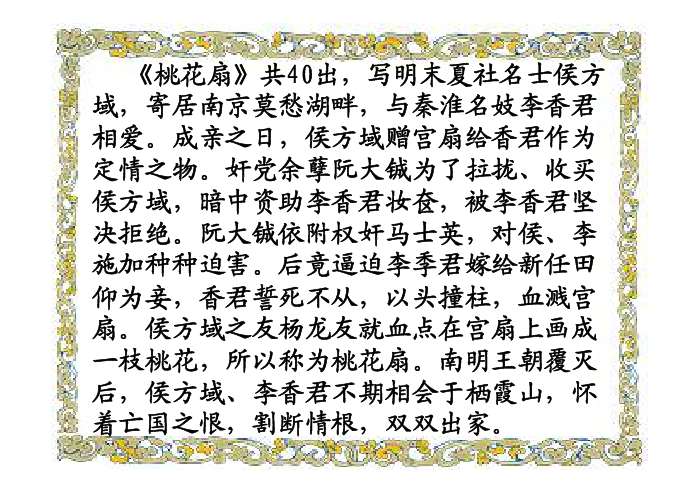 《桃花扇》共40出，写明末夏社名士侯方
域，寄居南京莫愁湖畔，与秦淮名妓李香君
相爱。成亲之日，侯方域赠宫扇给香君作为
定情之物。奸党余孽阮大铖为了拉拢、收买
侯方域，暗中资助李香君妆奁，被李香君坚
决拒绝。阮大铖依附权奸马士英，对侯、李
施加种种迫害。后竟逼迫李季君嫁给新任田
仰为妾，香君誓死不从，以头撞柱，血溅宫
扇。侯方域之友杨龙友就血点在宫扇上画成
一枝桃花，所以称为桃花扇。南明王朝覆灭
后，侯方域、李香君不期相会于栖霞山，怀
着亡国之恨，割断情根，双双出家。